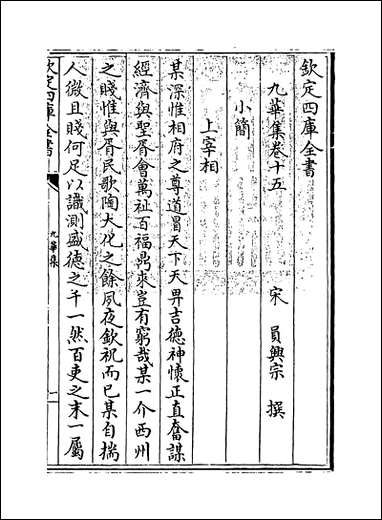 欽定四庫全書
九華集卷十五
宋 員興宗 撰
小簡
上宰相
某深惟相府之尊道冒天下天畀吉德神懷正直奮謀
經濟與聖胥會萬祉百福昂來豈有窮哉某一介西州
之賤惟與胥民歌陶大化之餘夙夜欽祝而已某自揣
人微且賤何足以識測盛德之千一然百吏之末一屬
欽定四庫全書
九華集
一